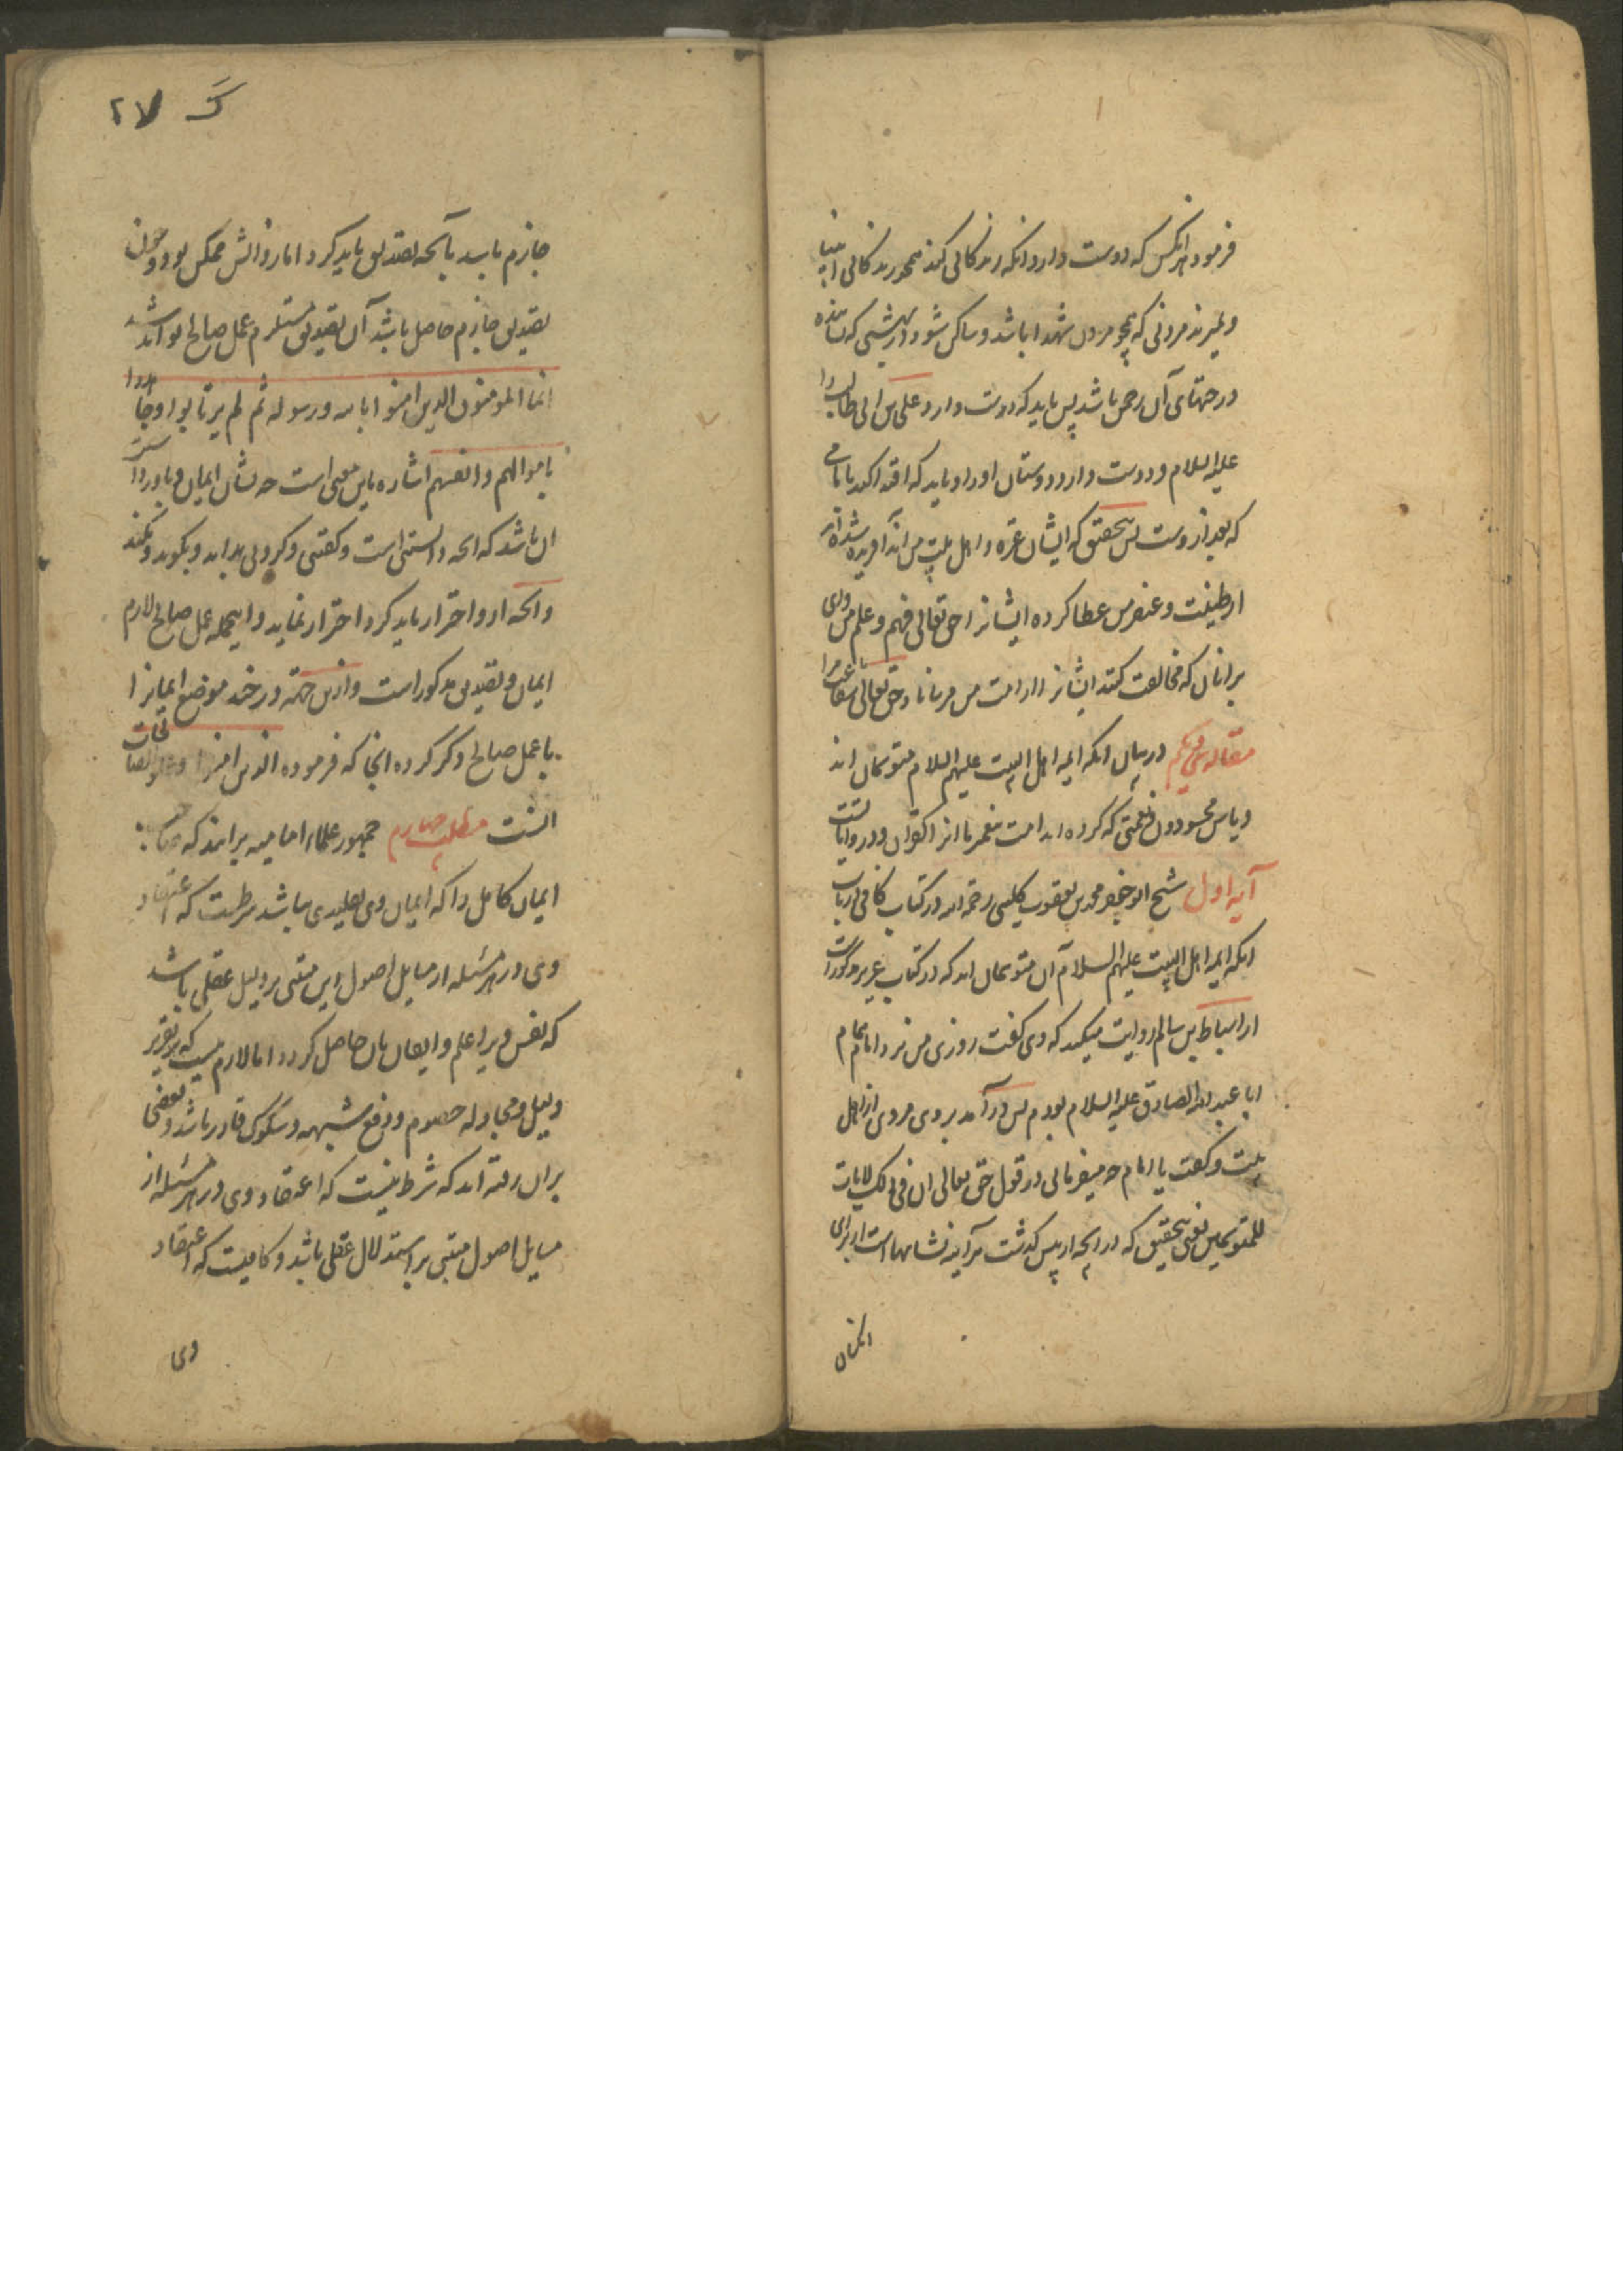 فرمود هرانکس که دوست دارد انکه زندکانی کند همچو زندکانی انبیا
و بمیرد مردنی که همچو مردن شهدا باشد و ساکن شود در بهشتی که نشانده
درختهای آن رحمن باشد پس باید که دوست دارد علی بن ابی طالب را
علیه السلام و دوست دارد دوستان او را و باید که اقتدا کند بامامی
که بعد ازوست پس بتحقیق که ایشان عترة و اهل بیت من اند آفریده شده اند
از طینت و عنصر من عطا کرده ایشانرا حق تعالی فهم و علم من وای
برانان که مخالفت کنند ایشانرا از امت من مرسانا د حق تعالی شفاعت مرا
مقاله در بیان انکه ایمه اهل البیت علیهم السلام متوسمان اند
و بیان محسودون نعمتی که کرده اند امت پیغمبر ما انرا کفران و در روایاتست
آیه اول شیخ ابو جعفر محمد بن یعقوب کلینی رحمه الله در کتاب کافی در باب
انکه ایمه اهل البیت علیهم السلام آن متوسمان اند که در کتاب عزیز مذکورات
از اسباط بن سالم روایت میکند که وی کفت روزی من نزد امام
ابا عبد الله الصادق علیه السلام بودم پس درآمد بروی مردی از اهل
بیت و کفت یا امام چه میفرمایی در قول حق تعالی ان فی ذلک لایات
للمتوسمین یعنی بتحقیق که در آنچه از پیش کذشت هرآینه نشانهاست از برای
گ ۲۷
جازم باشد بآنچه تصدیق باید کرد اما زوالش ممکن بود و چون
تصدیق جازم حاصل باشد آن تصدیق مستلزم عمل صالح بود
انما المومنون الذین امنوا بالله و رسوله ثم لم یرتابوا و جاهدوا
باموالهم و انفسهم اشاره باین معنی است چه نشان ایمان و باور داشتن
ان باشد که انچه دانستنی است و کفتنی و کردنی بداند و بکوید و بکند
و انچه ازو احتراز باید کرد احتراز نماید و اینجمله عمل صالح لازم
ایمان و تصدیق مذکور است و ازین جهة در چند موضع ایمانرا
با عمل صالح ذکر کرده انجا که فرموده الذین امنوا و عملوا الصالحات
انست مطلب چهارم جمهور علماء امامیه برانند که
ایمان کامل را که ایمان وی تقلیدی نباشد شرطست که اعتقاد
وی در هر مسئله از مسایل اصول دین مبتنی بر دلیل عقلی باشد
که نفس ویرا علم و ایقان بان حاصل کردد اما لازم نیست که بر تقریر
دلیل و مجادله خصوم و دفع شبهه و شکوک قادر باشد و بعضی
بران رفته اند که شرط نیست که اعتقاد وی در هر مسئله از
مسایل اصول مبتنی بر استدلال عقلی باشد و کافیست که اعتقاد
وی